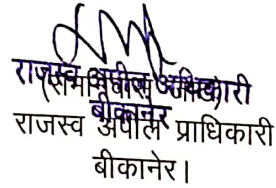 राजस्व अपील अधिकारी
बीकानेर
राजस्व अपील प्राधिकारी
बीकानेर।